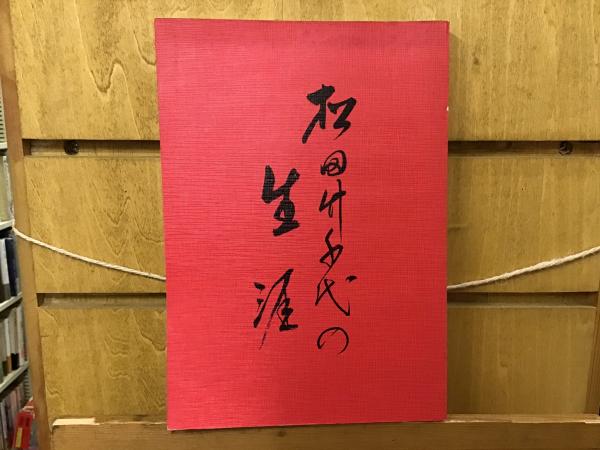 松田竹千代の
生涯